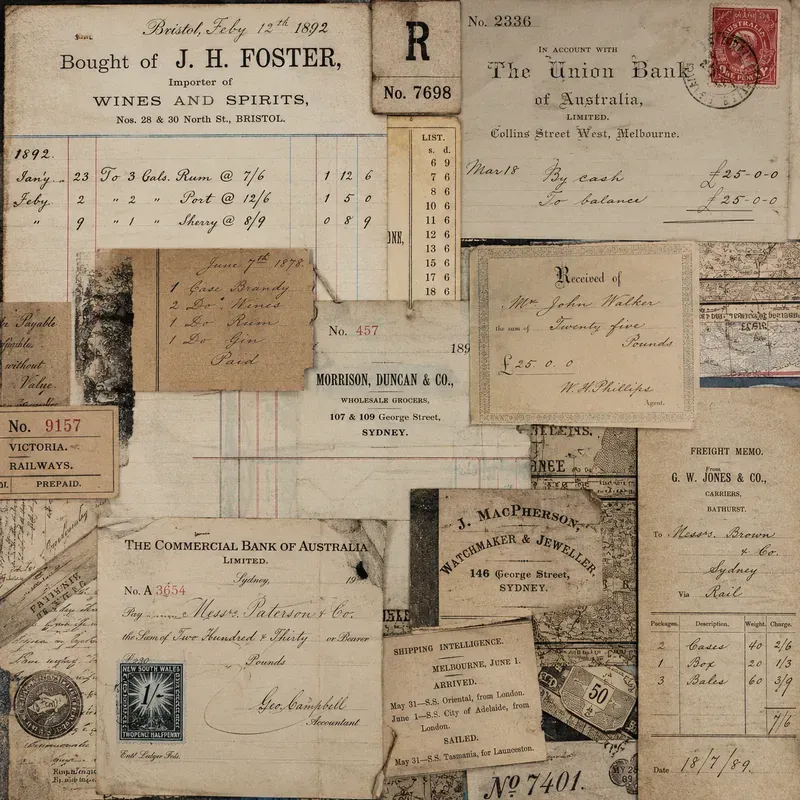 Bristol, Feby 12th 1892
Bought of J. H. FOSTER,
Importer of
WINES AND SPIRITS,
Nos. 28 & 30 North St., BRISTOL.
1892.
Jan'y. 23 To 3 Gals. Rum @ 7/6 1 12 6
Feby. 2 " 2 " Port @ 12/6 1 5 0
" 9 " 1 " Sherry @ 8/9 0 8 9
R
No. 7698
LIST.
s. d.
6 9
7 6
8 6
10 6
11 6
12 6
13 6
15 6
17 6
18 6
No. 2336
IN ACCOUNT WITH
The Union Bank
of Australia,
LIMITED.
Collins Street West, Melbourne.
Mar 18 By cash £25-0-0
To balance £25-0-0
AUSTRALIA
ONE PENNY
June 7th 1878.
1 Case Brandy
2 Do. Wines
1 Do Rum
1 Do Gin
Paid
Received of
Mr John Walker
the sum of Twenty five
Pounds
£25. 0. 0
W. H. Phillips
Agent.
Payable
without
Value
No. 457
189
MORRISON, DUNCAN & CO.,
WHOLESALE GROCERS,
107 & 109 George Street,
SYDNEY.
No. 9157
VICTORIA.
RAILWAYS.
PREPAID.
FREIGHT MEMO.
From
G. W. JONES & CO.,
CARRIERS,
BATHURST.
To Messrs. Brown
& Co.
Sydney
Via Rail
Packages. Description. Weight. Charge.
2 Cases 40 2/6
1 Box 20 1/3
3 Bales 60 3/9
7/6
Date 18/7/89.
J. MACPHERSON,
WATCHMAKER & JEWELLER,
146 George Street,
SYDNEY.
THE COMMERCIAL BANK OF AUSTRALIA
LIMITED.
Sydney, 19
No. A 3654
Pay Messrs. Paterson & Co.
the Sum of Two Hundred & Thirty or Bearer
£230 Pounds
NEW SOUTH WALES
1/-
TWOPENCE HALFPENNY
Geo. Campbell
Accountant
Entd Ledger Fols.
SHIPPING INTELLIGENCE.
MELBOURNE, JUNE 1.
ARRIVED.
May 31—S.S. Oriental, from London.
June 1—S.S. City of Adelaide, from
London.
SAILED.
May 31—S.S. Tasmania, for Launceston.
50
No 7401.